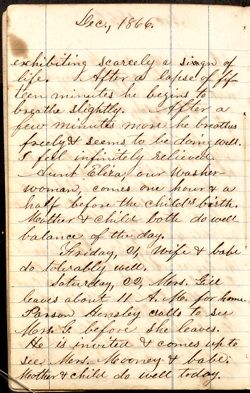 Dec., 1866.
exhibiting scarcely a sign of
life. After a lapse of fif
teen minutes he begins to
breathe slightly. After a
few minutes more he breathes
freely & seems to be doing well.
I feel infinitely relieved.
Aunt Eliza, our washer
woman, comes one hour & a
half before the child's birth.
Mother & child both do well
balance of the day.
Friday, 21, Wife & babe
do tolerably well.
Saturday, 22, Mrs. Gill
leaves about 11 A.M. for home.
Parson Hensley calls to see
Mrs. G before she leaves.
He is invited & comes up to
see Mrs. Mooney & babe.
Mother & child do well today.